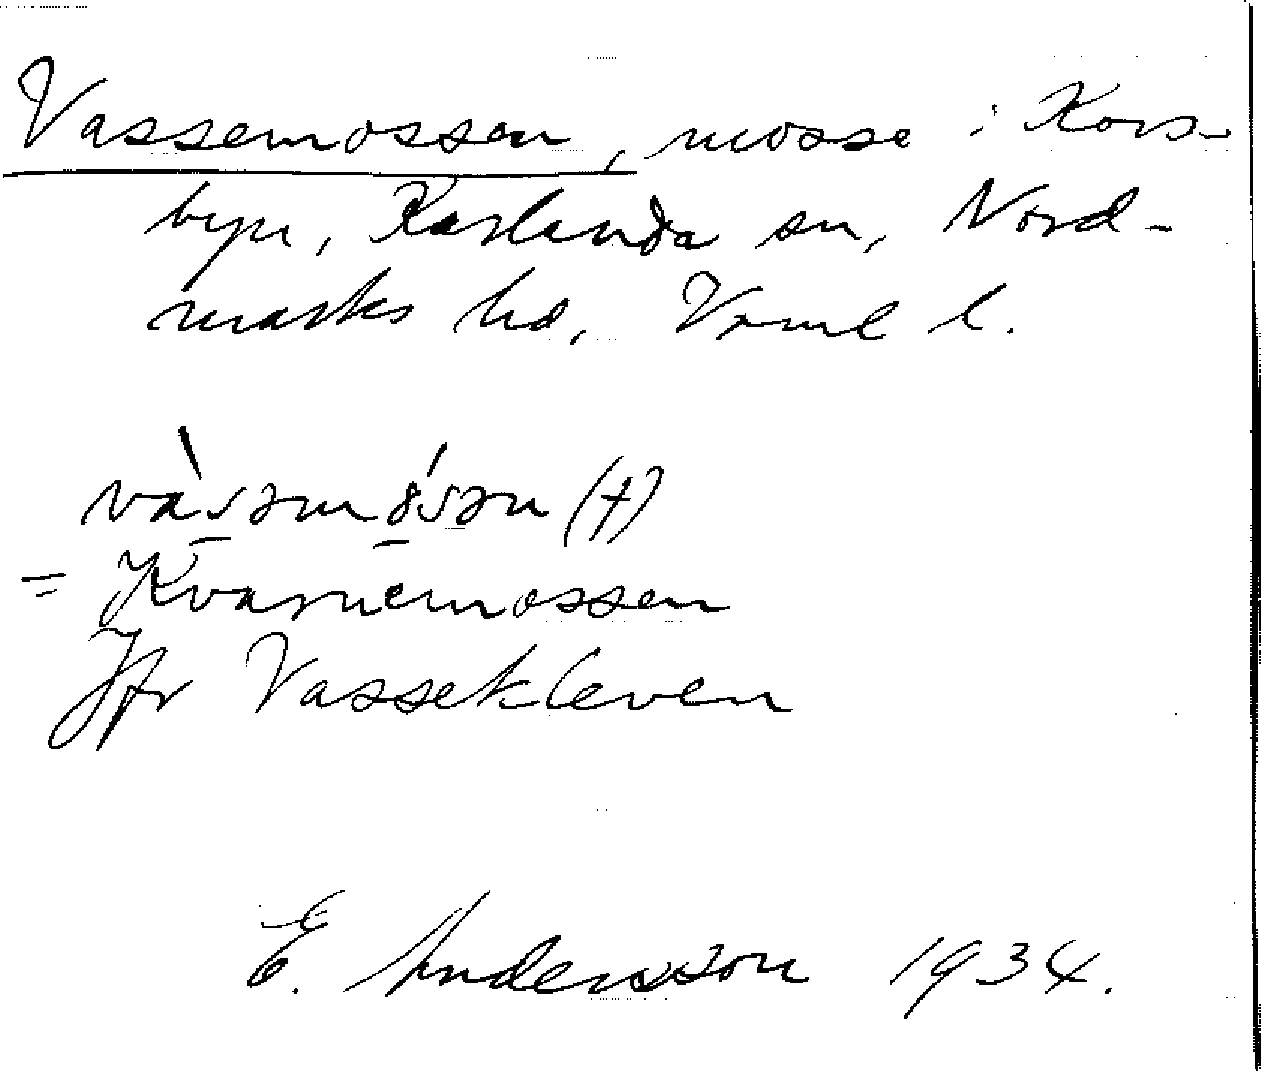 Vassemossen, mosse i Kors-
byn, Karlanda sn, Nord-
marks hd, Vrml l.
vàsəmósən (†)
= Kvarnemossen
Jfr Vassekleven
E. Andersson 1934.